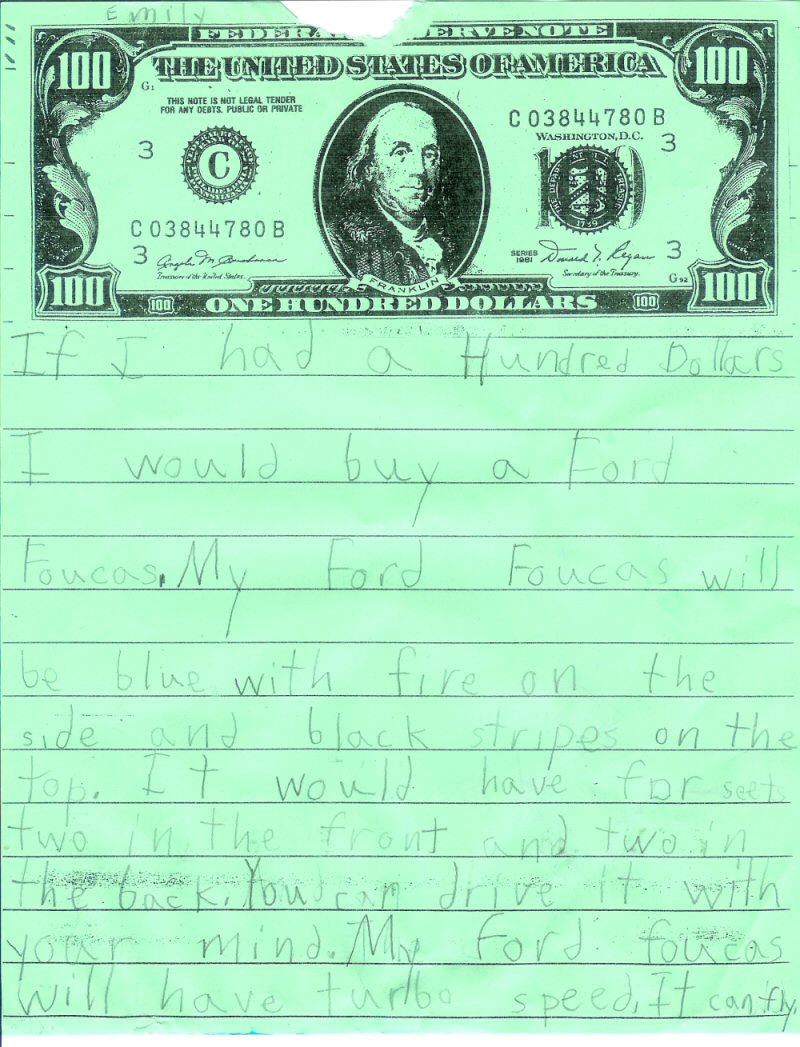 Emily
FEDERA ERVE NOTE
100 THE UNITED STATES OF AMERICA 100
G1
THIS NOTE IS NOT LEGAL TENDER
FOR ANY DEBTS. PUBLIC OR PRIVATE
C 03844780 B
WASHINGTON, D.C.
3 C 3
C 03844780 B
3 SERIES 1981 Donald T. Regan 3
Treasurer of the United States. Secretary of the Treasury. G92
FRANKLIN
100 100 ONE HUNDRED DOLLARS 100 100
If I had a Hundred Dollars
I would buy a Ford
Foucas. My Ford Foucas will
be blue with fire on the
side and black stripes on the
top. It would have for seets
two in the front and two in
the back. You can drive it with
your mind. My Ford foucas
will have turbo speed. It can fly.